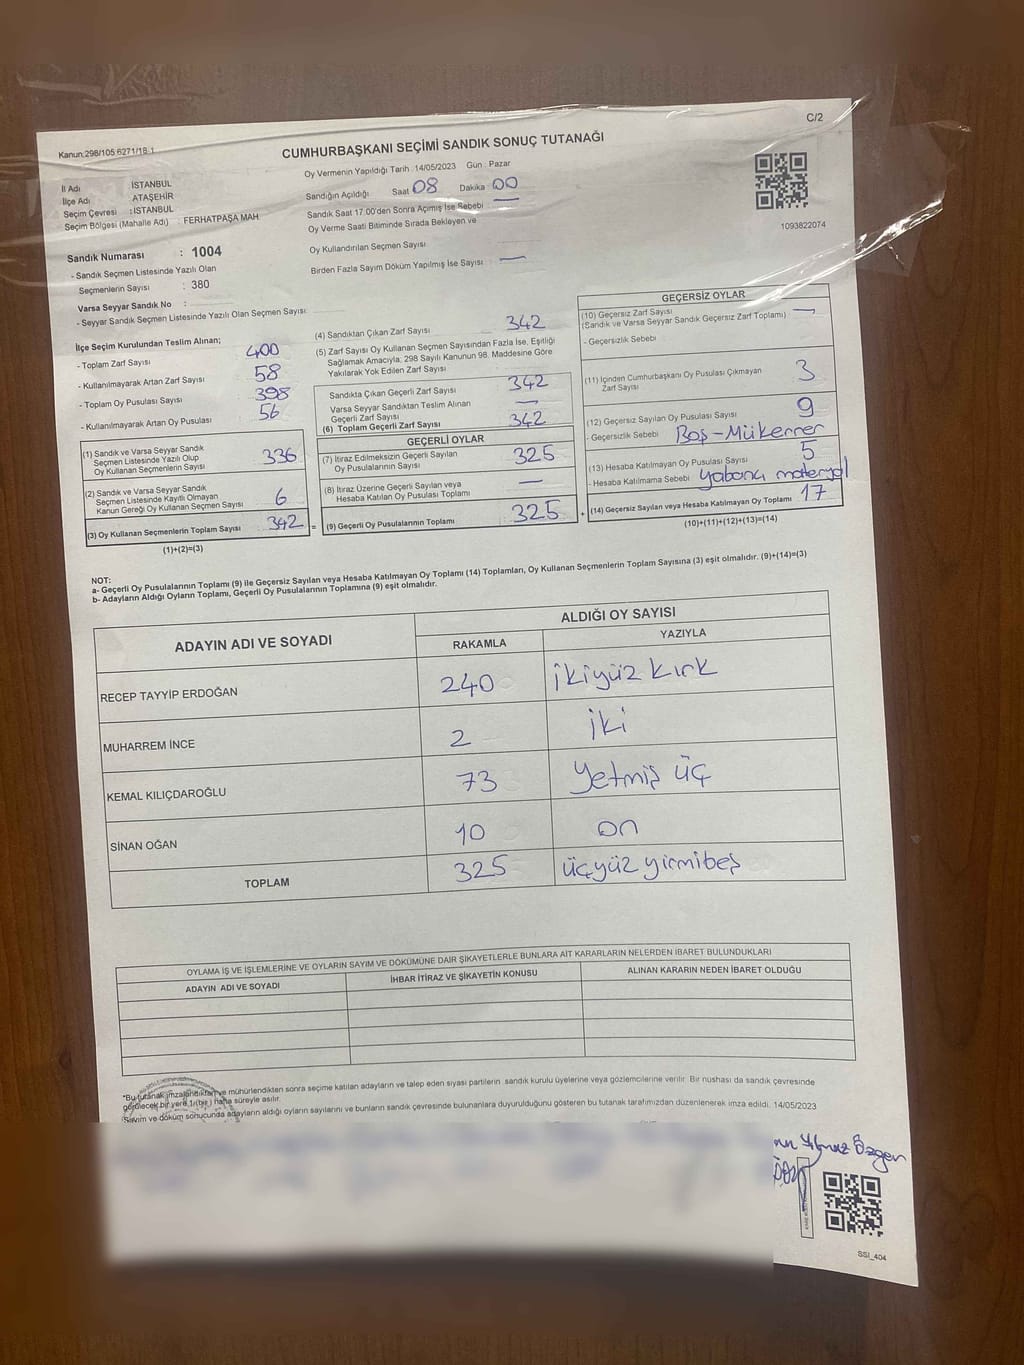 C/2
Kanun:298/105 6271/18-1
CUMHURBAŞKANI SEÇİMİ SANDIK SONUÇ TUTANAĞI
İl Adı : İSTANBUL
İlçe Adı : ATAŞEHİR
Seçim Çevresi : İSTANBUL
Seçim Bölgesi (Mahalle Adı) : FERHATPAŞA MAH.
Sandık Numarası : 1004
- Sandık Seçmen Listesinde Yazılı Olan
Seçmenlerin Sayısı : 380
Varsa Seyyar Sandık No :
- Seyyar Sandık Seçmen Listesinde Yazılı Olan Seçmen Sayısı:
Oy Vermenin Yapıldığı Tarih : 14/05/2023 Gün : Pazar
Sandığın Açıldığı Saat 08 Dakika : 00
Sandık Saat 17.00'den Sonra Açımış İse Sebebi : —
Oy Verme Saati Bitiminde Sırada Bekleyen ve
Oy Kullandırılan Seçmen Sayısı
Birden Fazla Sayım Döküm Yapılmış İse Sayısı : —
1093822074
İlçe Seçim Kurulundan Teslim Alınan;
- Toplam Zarf Sayısı 400
- Kullanılmayarak Artan Zarf Sayısı 58
- Toplam Oy Pusulası Sayısı 398
- Kullanılmayarak Artan Oy Pusulası 56
(1) Sandık ve Varsa Seyyar Sandık
Seçmen Listesinde Yazılı Olup
Oy Kullanan Seçmenlerin Sayısı 336
(2) Sandık ve Varsa Seyyar Sandık
Seçmen Listesinde Kayıtlı Olmayan
Kanun Gereği Oy Kullanan Seçmen Sayısı 6
(3) Oy Kullanan Seçmenlerin Toplam Sayısı 342 =
(1)+(2)=(3)
(4) Sandıktan Çıkan Zarf Sayısı 342
(5) Zarf Sayısı Oy Kullanan Seçmen Sayısından Fazla İse, Eşitliği
Sağlamak Amacıyla; 298 Sayılı Kanunun 98. Maddesine Göre
Yakılarak Yok Edilen Zarf Sayısı
Sandıkta Çıkan Geçerli Zarf Sayısı 342
Varsa Seyyar Sandıktan Teslim Alınan
Geçerli Zarf Sayısı —
(6) Toplam Geçerli Zarf Sayısı 342
GEÇERLİ OYLAR
(7) İtiraz Edilmeksizin Geçerli Sayılan
Oy Pusulalarının Sayısı 325
(8) İtiraz Üzerine Geçerli Sayılan veya
Hesaba Katılan Oy Pusulası Toplamı —
(9) Geçerli Oy Pusulalarının Toplamı 325 +
GEÇERSİZ OYLAR
(10) Geçersiz Zarf Sayısı
(Sandık ve Varsa Seyyar Sandık Geçersiz Zarf Toplamı) —
- Geçersizlik Sebebi
(11) İçinden Cumhurbaşkanı Oy Pusulası Çıkmayan
Zarf Sayısı 3
(12) Geçersiz Sayılan Oy Pusulası Sayısı 9
- Geçersizlik Sebebi Boş-Mükerrer
(13) Hesaba Katılmayan Oy Pusulası Sayısı 5
- Hesaba Katılmama Sebebi yabancı materyal
(14) Geçersiz Sayılan veya Hesaba Katılmayan Oy Toplamı 17
(10)+(11)+(12)+(13)=(14)
NOT:
a- Geçerli Oy Pusulalarının Toplamı (9) ile Geçersiz Sayılan veya Hesaba Katılmayan Oy Toplamı (14) Toplamları, Oy Kullanan Seçmenlerin Toplam Sayısına (3) eşit olmalıdır. (9)+(14)=(3)
b- Adayların Aldığı Oyların Toplamı, Geçerli Oy Pusulalarının Toplamına (9) eşit olmalıdır.
ADAYIN ADI VE SOYADI
ALDIĞI OY SAYISI
RAKAMLA YAZIYLA
RECEP TAYYİP ERDOĞAN 240 ikiyüz kırk
MUHARREM İNCE 2 iki
KEMAL KILIÇDAROĞLU 73 Yetmiş üç
SİNAN OĞAN 10 on
TOPLAM 325 üçyüz yirmibeş
OYLAMA İŞ VE İŞLEMLERİNE VE OYLARIN SAYIM VE DÖKÜMÜNE DAİR ŞİKAYETLERLE BUNLARA AİT KARARLARIN NELERDEN İBARET BULUNDUKLARI
ADAYIN ADI VE SOYADI İHBAR İTİRAZ VE ŞİKAYETİN KONUSU ALINAN KARARIN NEDEN İBARET OLDUĞU
*Bu tutanak imzalandıktan ve mühürlendikten sonra seçime katılan adayların ve talep eden siyasi partilerin sandık kurulu üyelerine veya gözlemcilerine verilir. Bir nushası da sandık çevresinde
görülecek bir yere 1(bir) hafta süreyle asılır.
Sayım ve döküm sonucunda adayların aldığı oyların sayılarını ve bunların sandık çevresinde bulunanlara duyurulduğunu gösteren bu tutanak tarafımızdan düzenlenerek imza edildi. 14/05/2023
Yılmaz Özgen
SSI_404